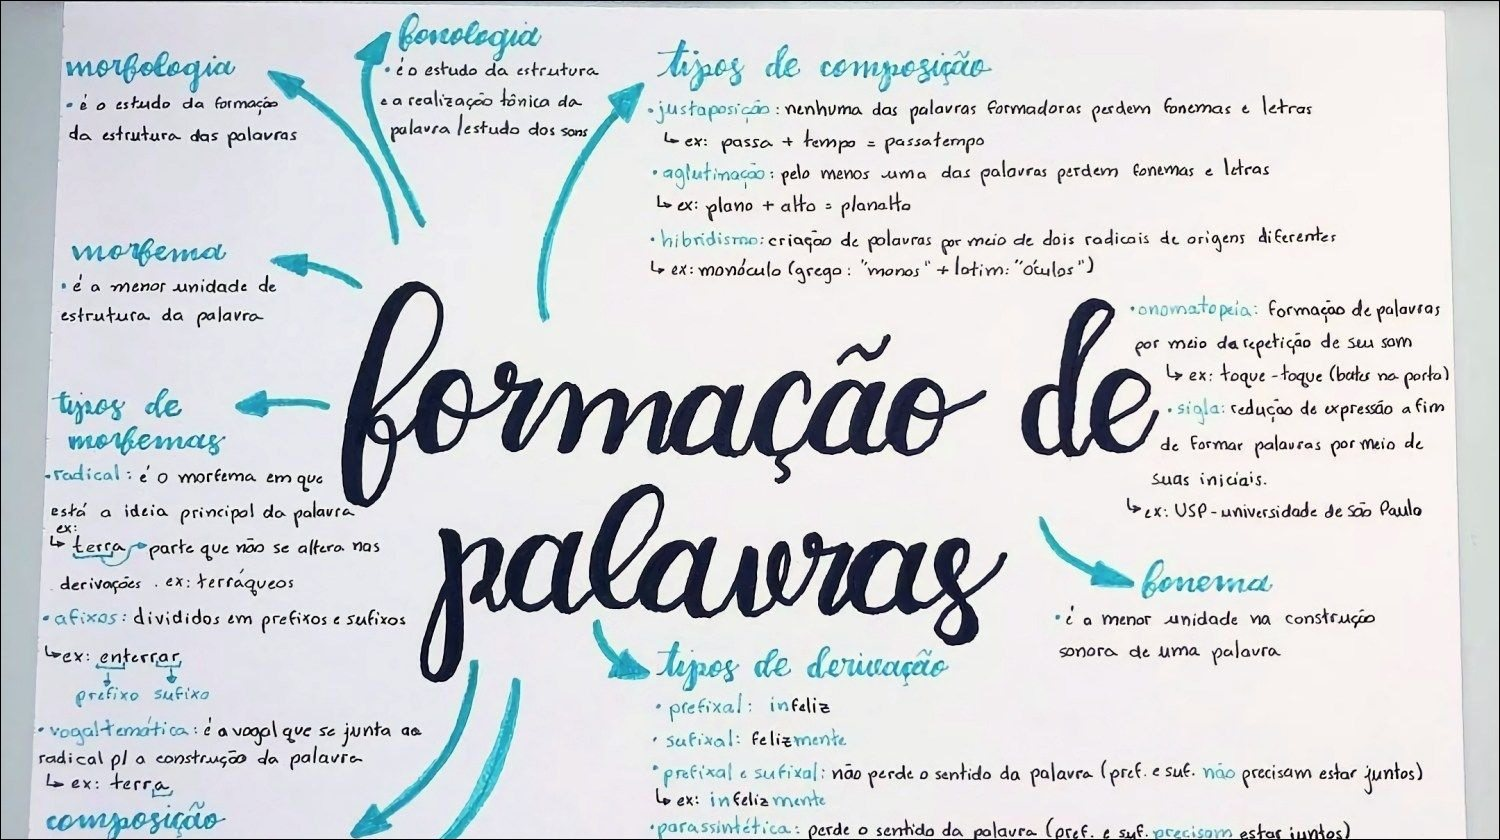 morfologia
• é o estudo da formação
da estrutura das palavras
fonologia
• é o estudo da estrutura
e a realização tônica da
palavra / estudo dos sons
tipos de composição
• justaposição: nenhuma das palavras formadoras perdem fonemas e letras
↳ ex: passa + tempo = passatempo
• aglutinação: pelo menos uma das palavras perdem fonemas e letras
↳ ex: plano + alto = planalto
• hibridismo: criação de palavras por meio de dois radicais de origens diferentes
↳ ex: monóculo (grego: "monos" + latim: "óculos")
• onomatopeia: formação de palavras
por meio da repetição de seu som
↳ ex: toque-toque (bater na porta)
• sigla: redução de expressão a fim
de formar palavras por meio de
suas iniciais.
↳ ex: USP - universidade de são Paulo
morfema
• é a menor unidade de
estrutura da palavra
formação de
palavras
tipos de
morfemas
• radical: é o morfema em que
está a ideia principal da palavra
ex:
↳ terra → parte que não se altera nas
derivações. ex: terráqueos
• afixos: divididos em prefixos e sufixos
↳ ex: enterrar
prefixo sufixo
• vogal temática: é a vogal que se junta ao
radical p/ a construção da palavra
↳ ex: terra
composição
fonema
• é a menor unidade na construção
sonora de uma palavra
tipos de derivação
• prefixal: infeliz
• sufixal: felizmente
• prefixal e sufixal: não perde o sentido da palavra (pref. e suf. não precisam estar juntos)
↳ ex: infelizmente
• parassintética: perde o sentido da palavra (pref. e suf. precisam estar juntos)